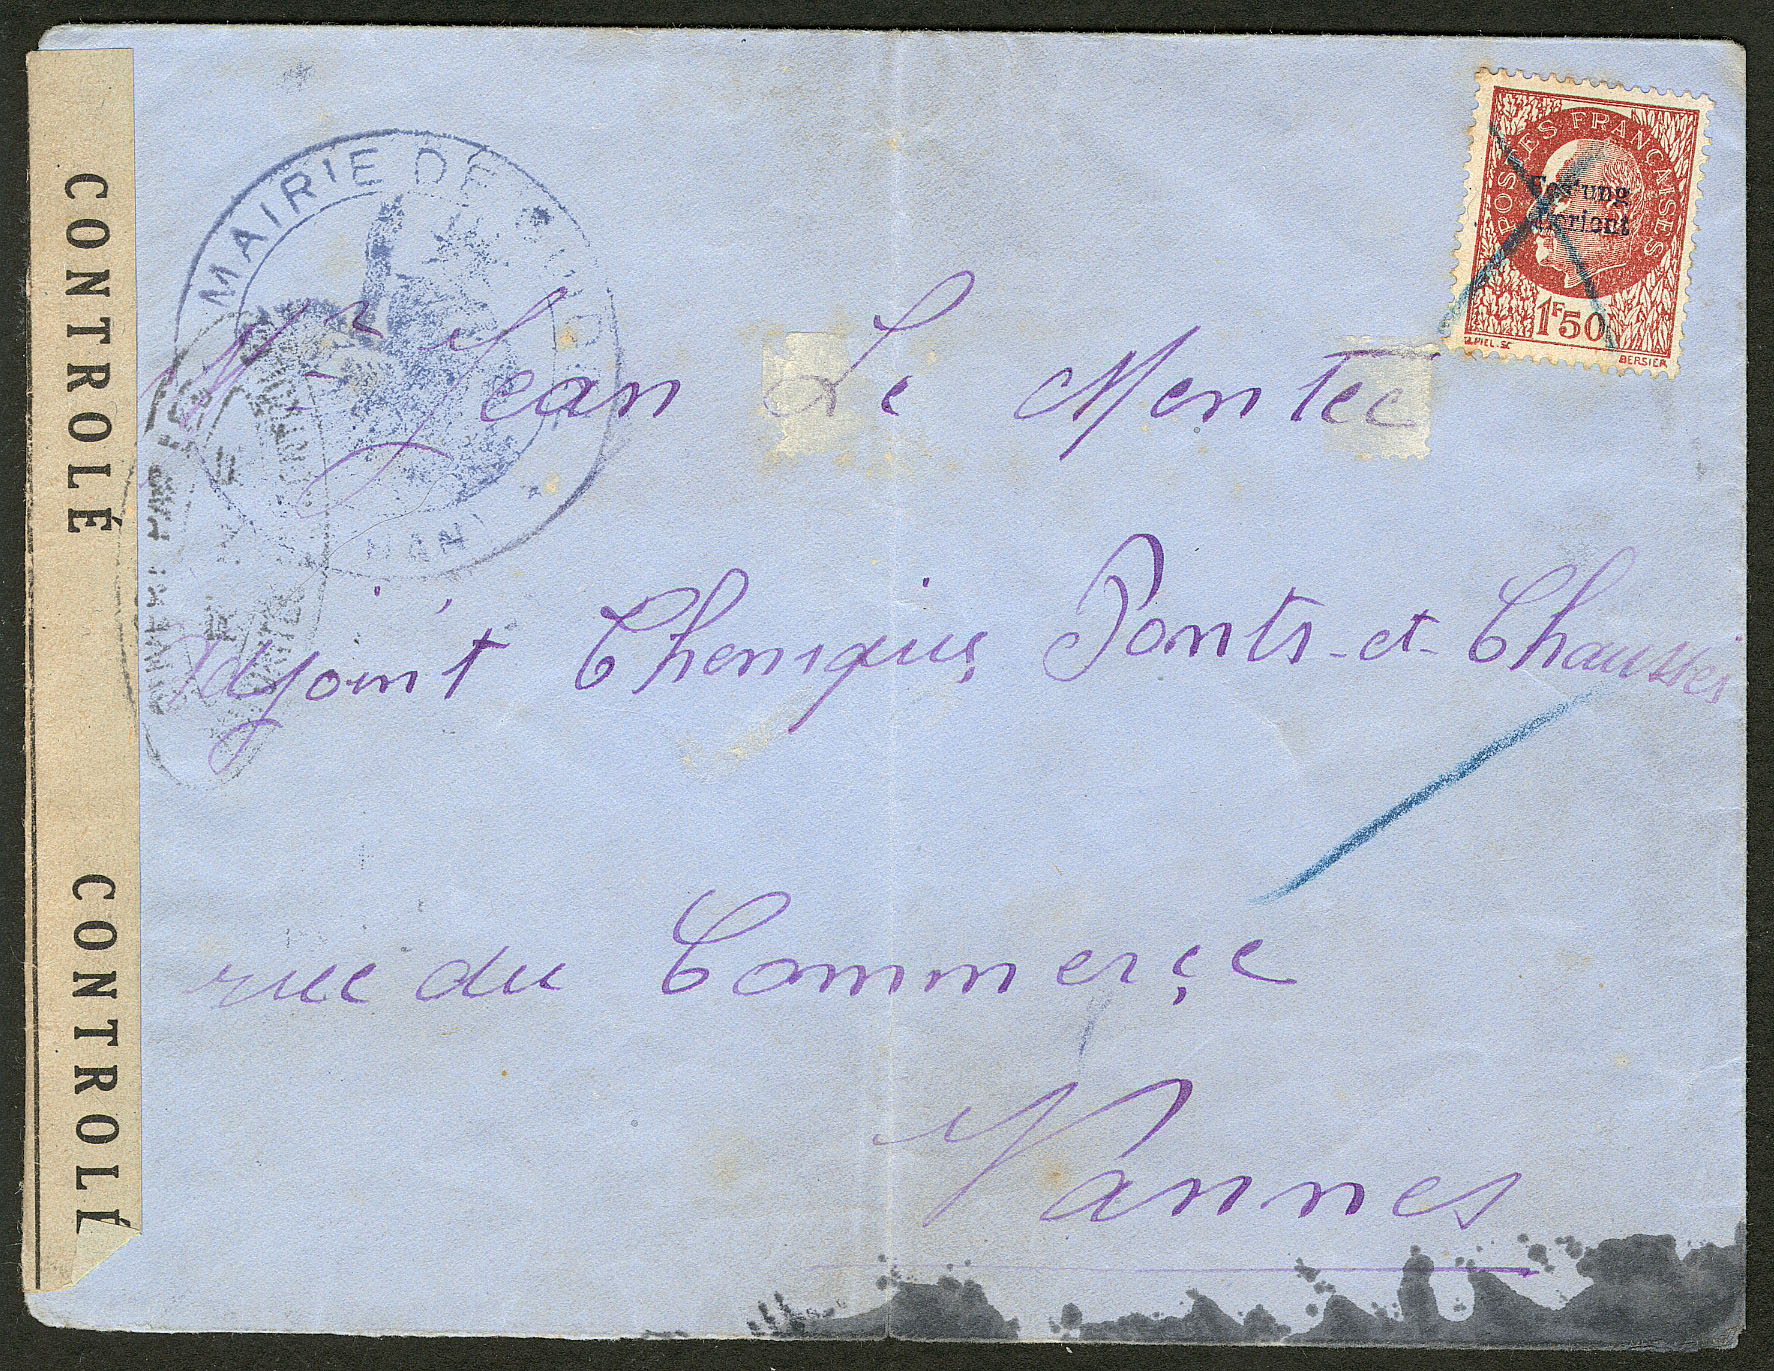 CONTROLÉ
CONTROLÉ
MAIRIE DE
OUVERT PAR
POSTES FRANÇAISES
Festung
Lorient
1F50
PIEL. SC
BERSIER
Mr Jean Le Mentec
Adjoint Thenique Ponts-et-Chaussés
rue du Commerce
Vannes